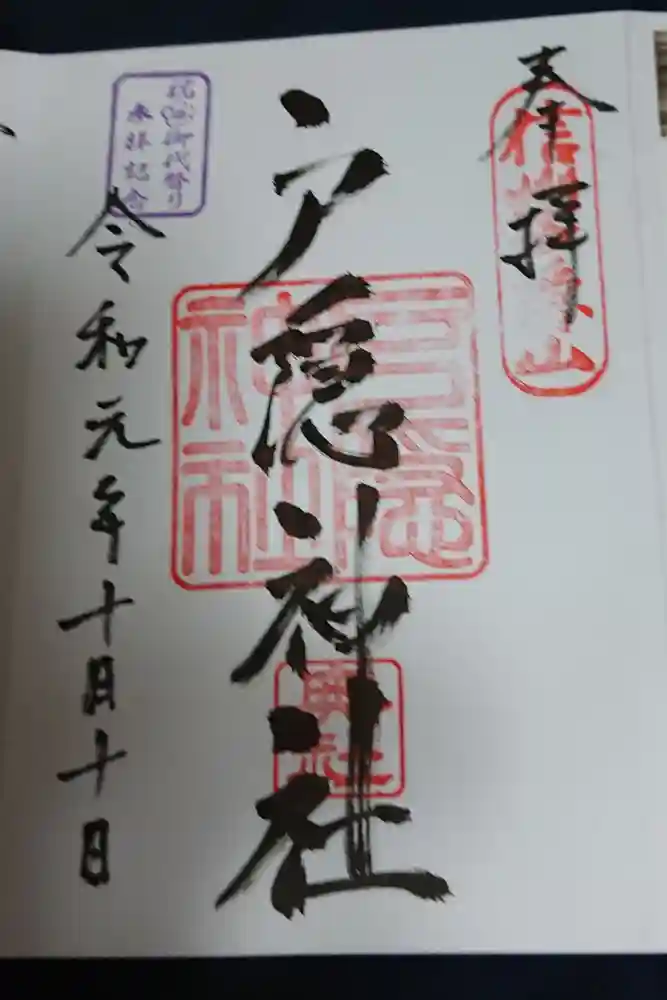 奉拝
信州戸隠山
戸隠神社
戸隠神社
奥社
令和元年十月十日
御代替り
参拝記念